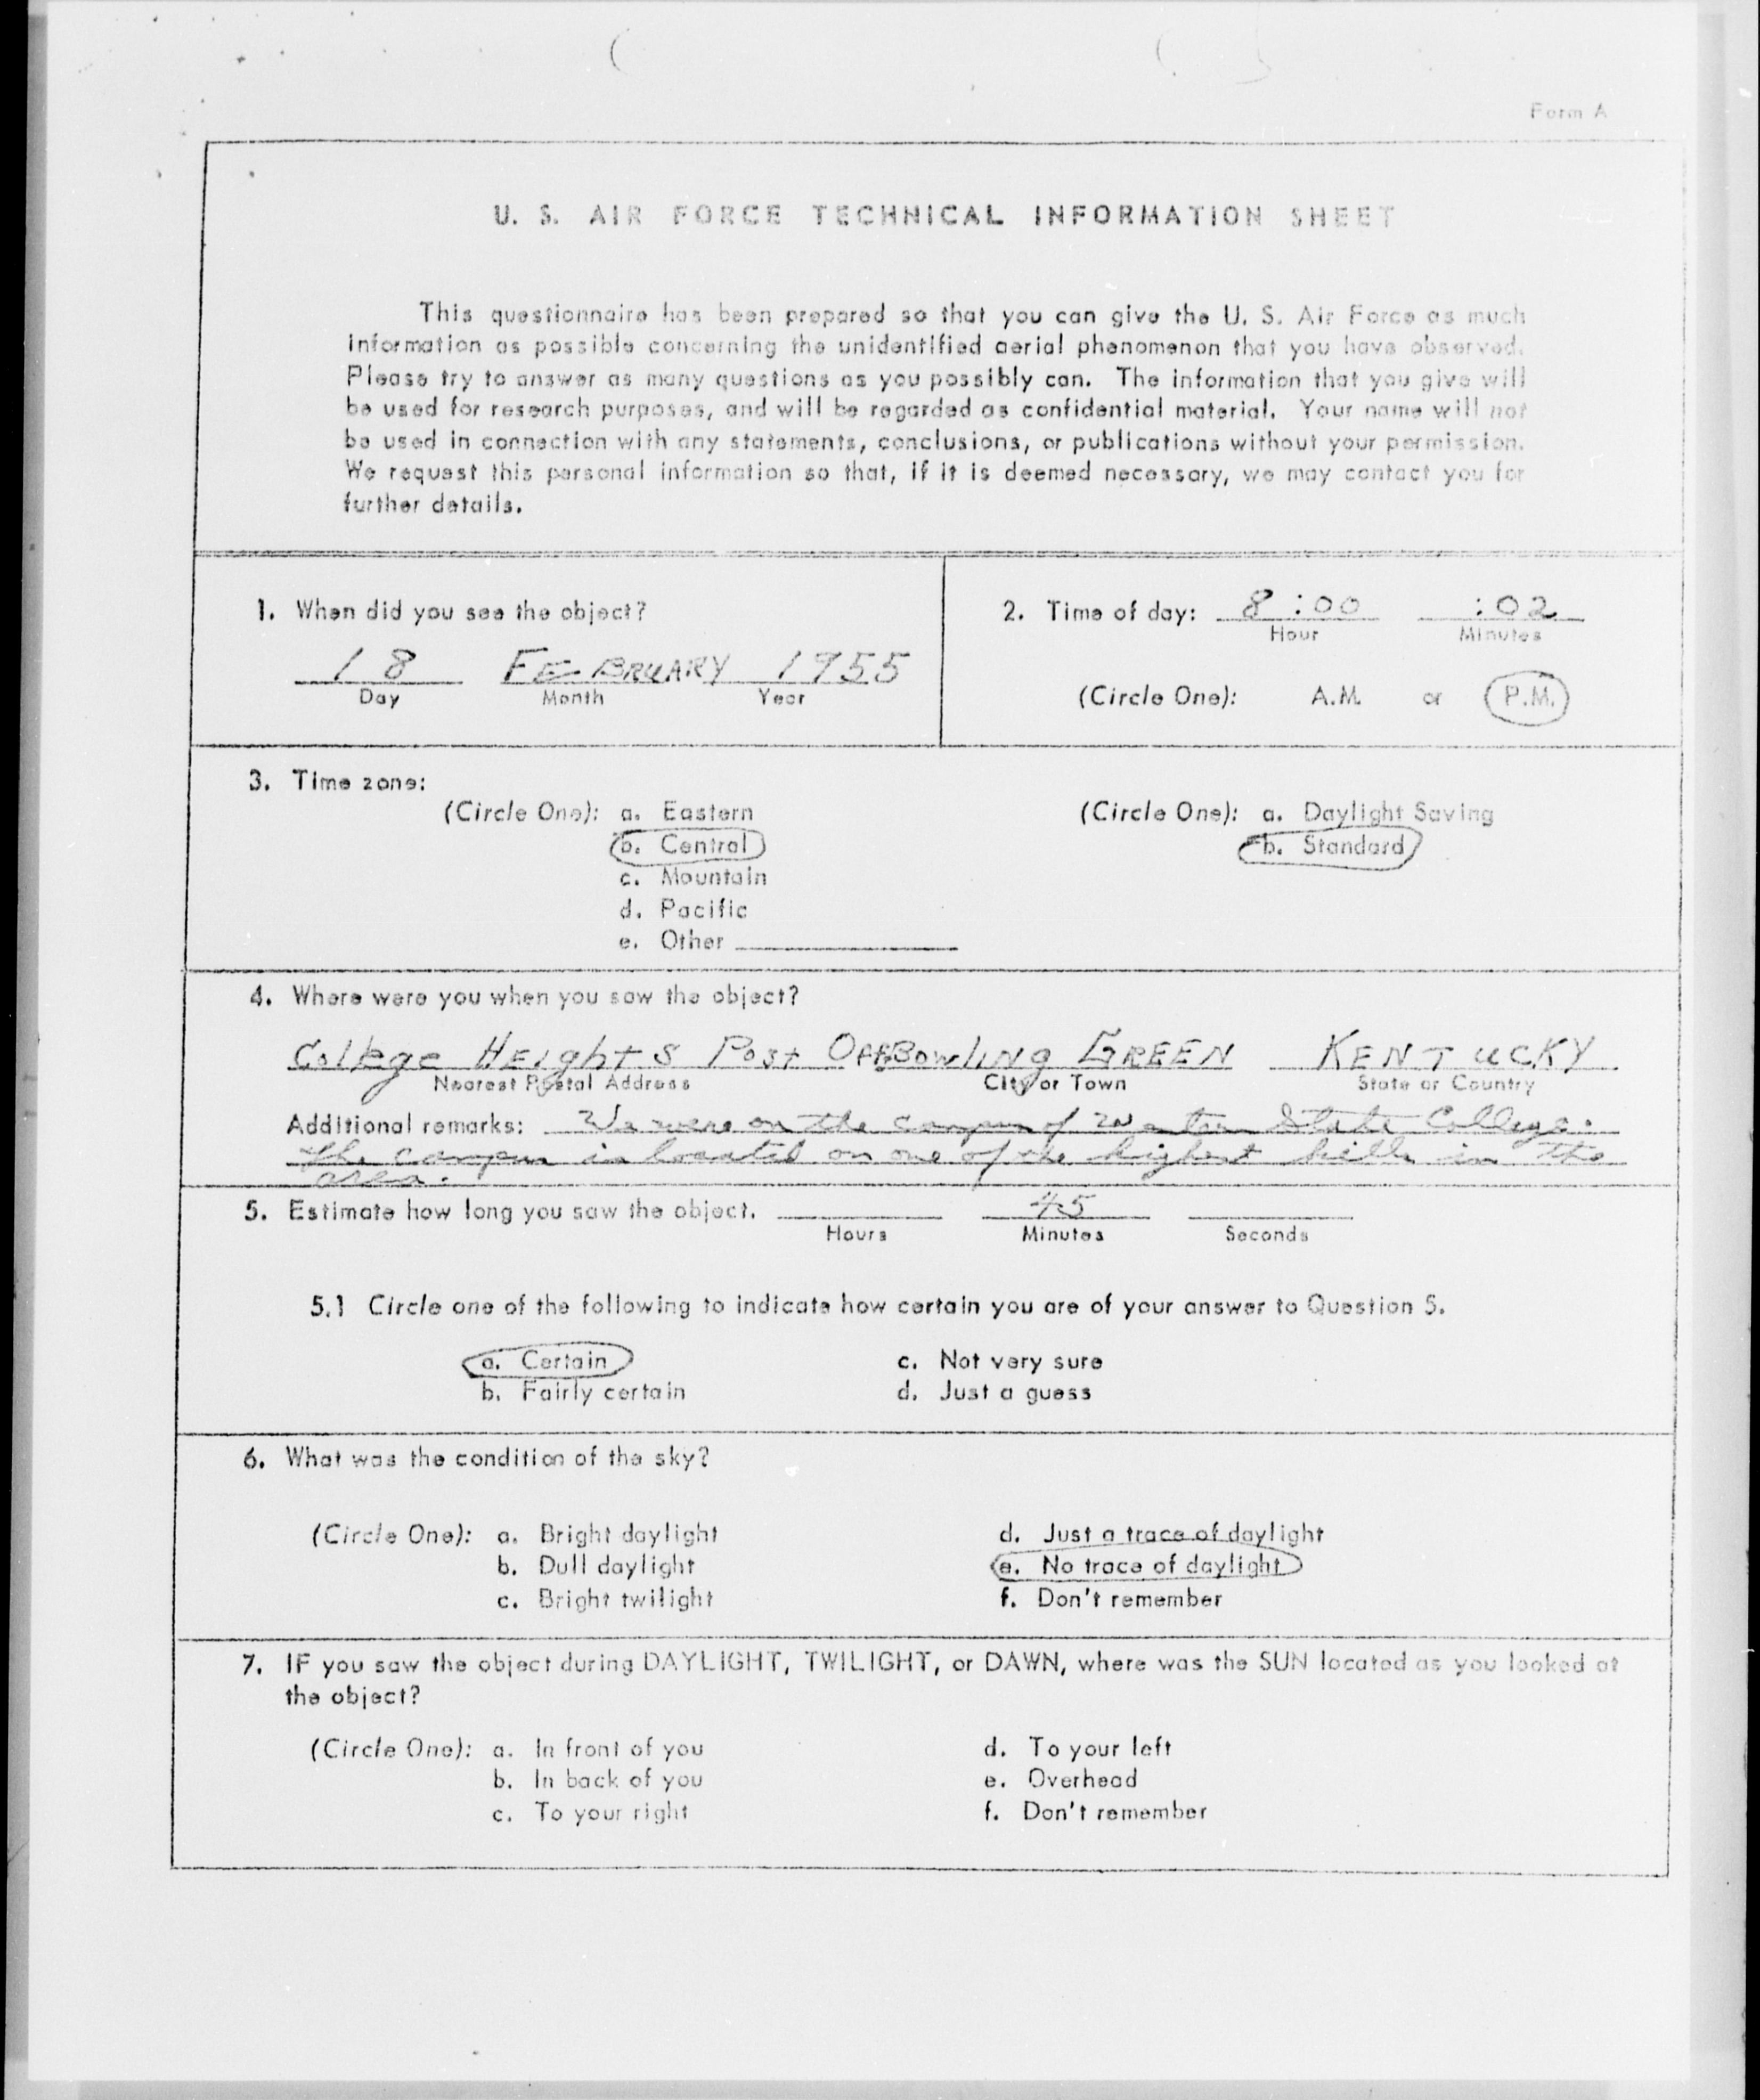 Form A
U. S. AIR FORCE TECHNICAL INFORMATION SHEET
This questionnaire has been prepared so that you can give the U. S. Air Force as much
information as possible concerning the unidentified aerial phenomenon that you have observed.
Please try to answer as many questions as you possibly can. The information that you give will
be used for research purposes, and will be regarded as confidential material. Your name will not
be used in connection with any statements, conclusions, or publications without your permission.
We request this personal information so that, if it is deemed necessary, we may contact you for
further details.
1. When did you see the object?
18 FEBRUARY 1955
Day Month Year
2. Time of day: 8:00 :02
Hour Minutes
(Circle One): A.M. or P.M.
3. Time zone:
(Circle One): a. Eastern
b. Central
c. Mountain
d. Pacific
e. Other
(Circle One): a. Daylight Saving
b. Standard
4. Where were you when you saw the object?
College Heights Post Off. Bowling GREEN KENTUCKY
Nearest Postal Address City or Town State or Country
Additional remarks: We were on the campus of Western State College.
The campus is located on one of the highest hills in the
area.
5. Estimate how long you saw the object. 45
Hours Minutes Seconds
5.1 Circle one of the following to indicate how certain you are of your answer to Question 5.
a. Certain c. Not very sure
b. Fairly certain d. Just a guess
6. What was the condition of the sky?
(Circle One): a. Bright daylight d. Just a trace of daylight
b. Dull daylight e. No trace of daylight
c. Bright twilight f. Don't remember
7. IF you saw the object during DAYLIGHT, TWILIGHT, or DAWN, where was the SUN located as you looked at
the object?
(Circle One): a. In front of you d. To your left
b. In back of you e. Overhead
c. To your right f. Don't remember